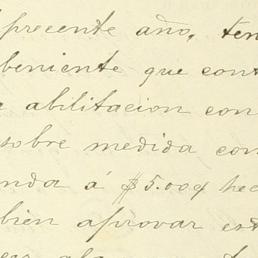 precente año, ten
beniente que cont
abilitacion con
sobre medida con
nda á $5.00
bien aprovar est